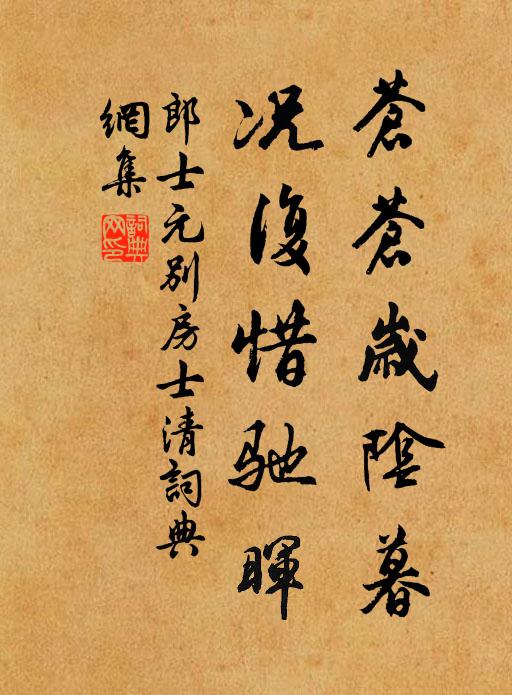 蒼蒼歲陰暮
况復惜馳暉
郎士元別房士清詞典
網集
詞典網印